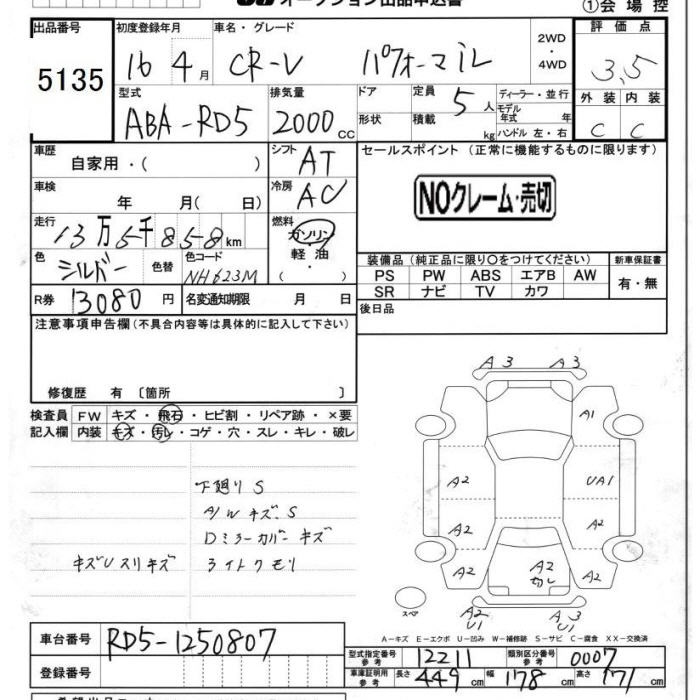 オークション出品申込書 ①会場控
出品番号 初度登録年月 車名・グレード 2WD・4WD 評価点
5135 16 4月 CR-V パフォーマ iL 3.5
型式 排気量 ドア 定員 5人 ディーラー・並行 外装 内装
ABA-RD5 2000cc 形状 積載 kg モデル年式 年 ハンドル 左・右 C C
車歴 自家用・( ) シフト AT セールスポイント (正常に機能するものに限ります)
車検 年 月( 日) 冷房 AC NOクレーム・売切
走行 13万5千858km 燃料 ガソリン・軽油・( )
色 シルバー 色替 色コード NH623M 装備品 (純正品に限り○をつけてください) 新車保証書
PS PW ABS エアB AW 有・無
SR ナビ TV カワ
R券 13080円 名変通知期限 月 日 後日品
注意事項申告欄 (不具合内容等は具体的に記入して下さい)
修復歴 有 〔箇所 〕
検査員 FW キズ・飛石・ヒビ割・リペア跡・×要
記入欄 内装 キズ・汚レ・コゲ・穴・スレ・キレ・破レ
下廻りS
A/WキズS
Dミラーカバーキズ
キズUスリキズ ライトクモリ
A3 A3
A1
A2 UA1
A2 A2
A2 A2切レ A2
スペア A2U1 A3U1
A-キズ E-エクボ U-凹み W-補修跡 S-サビ C-腐食 XX-交換済
車台番号 RD5-1250807
登録番号
型式指定番号参考 12211 類別区分番号参考 0007
車庫証明用参考 長さ 449cm 幅 178cm 高さ 171cm